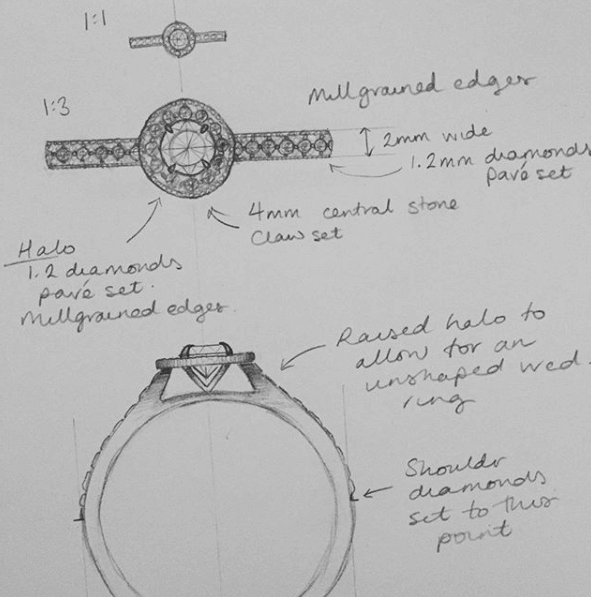 1:1
1:3
Millgrained edges
2mm wide
1.2mm diamonds
pavé set
4mm central stone
Claw set
Halo
1.2 diamonds
pavé set.
Millgrained edges.
Raised halo to
allow for an
unshaped wed.
ring
Shouldr
diamonds
set to this
point